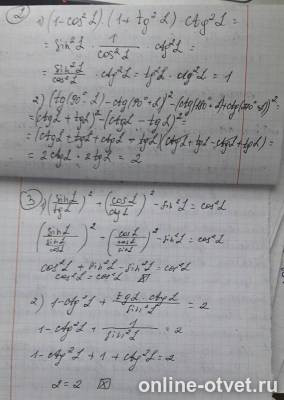 2) 1) (1-cos²α)·(1+tg²α)·ctg²α =
= sin²α · 1/cos²α · ctg²α =
sin²α/cos²α · ctg²α = tg²α · ctg²α = 1
2) (tg(90°-α) - ctg(90°+α))² - (ctg(180°+α)+ctg(270°+α))² =
= (ctgα + tgα)² - (ctgα - tgα)² =
= (ctgα + tgα + ctgα - tgα)(ctgα + tgα - ctgα + tgα) =
= 2ctgα · 2tgα = 2
3) 1) (sinα/tgα)² + (cosα/ctgα)² - sin²α = cos²α
(sinα/(sinα/cosα))² - (cosα/(cosα/sinα))² - sin²α = cos²α
cos²α + sin²α - sin²α = cos²α
cos²α = cos²α
2) 1 - ctg²α + tgα · ctgα/sin²α = 2
1 - ctg²α + 1/sin²α = 2
1 - ctg²α + 1 + ctg²α = 2
2 = 2
online-otvet.ru